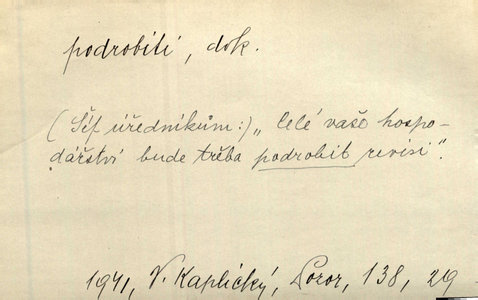 podrobiti, dok.
(Šéf úředníkům:) „Celé vaše hospo-
dářství bude třeba podrobit revisi“.
1941, V. Kaplický, Pozor, 138, 219